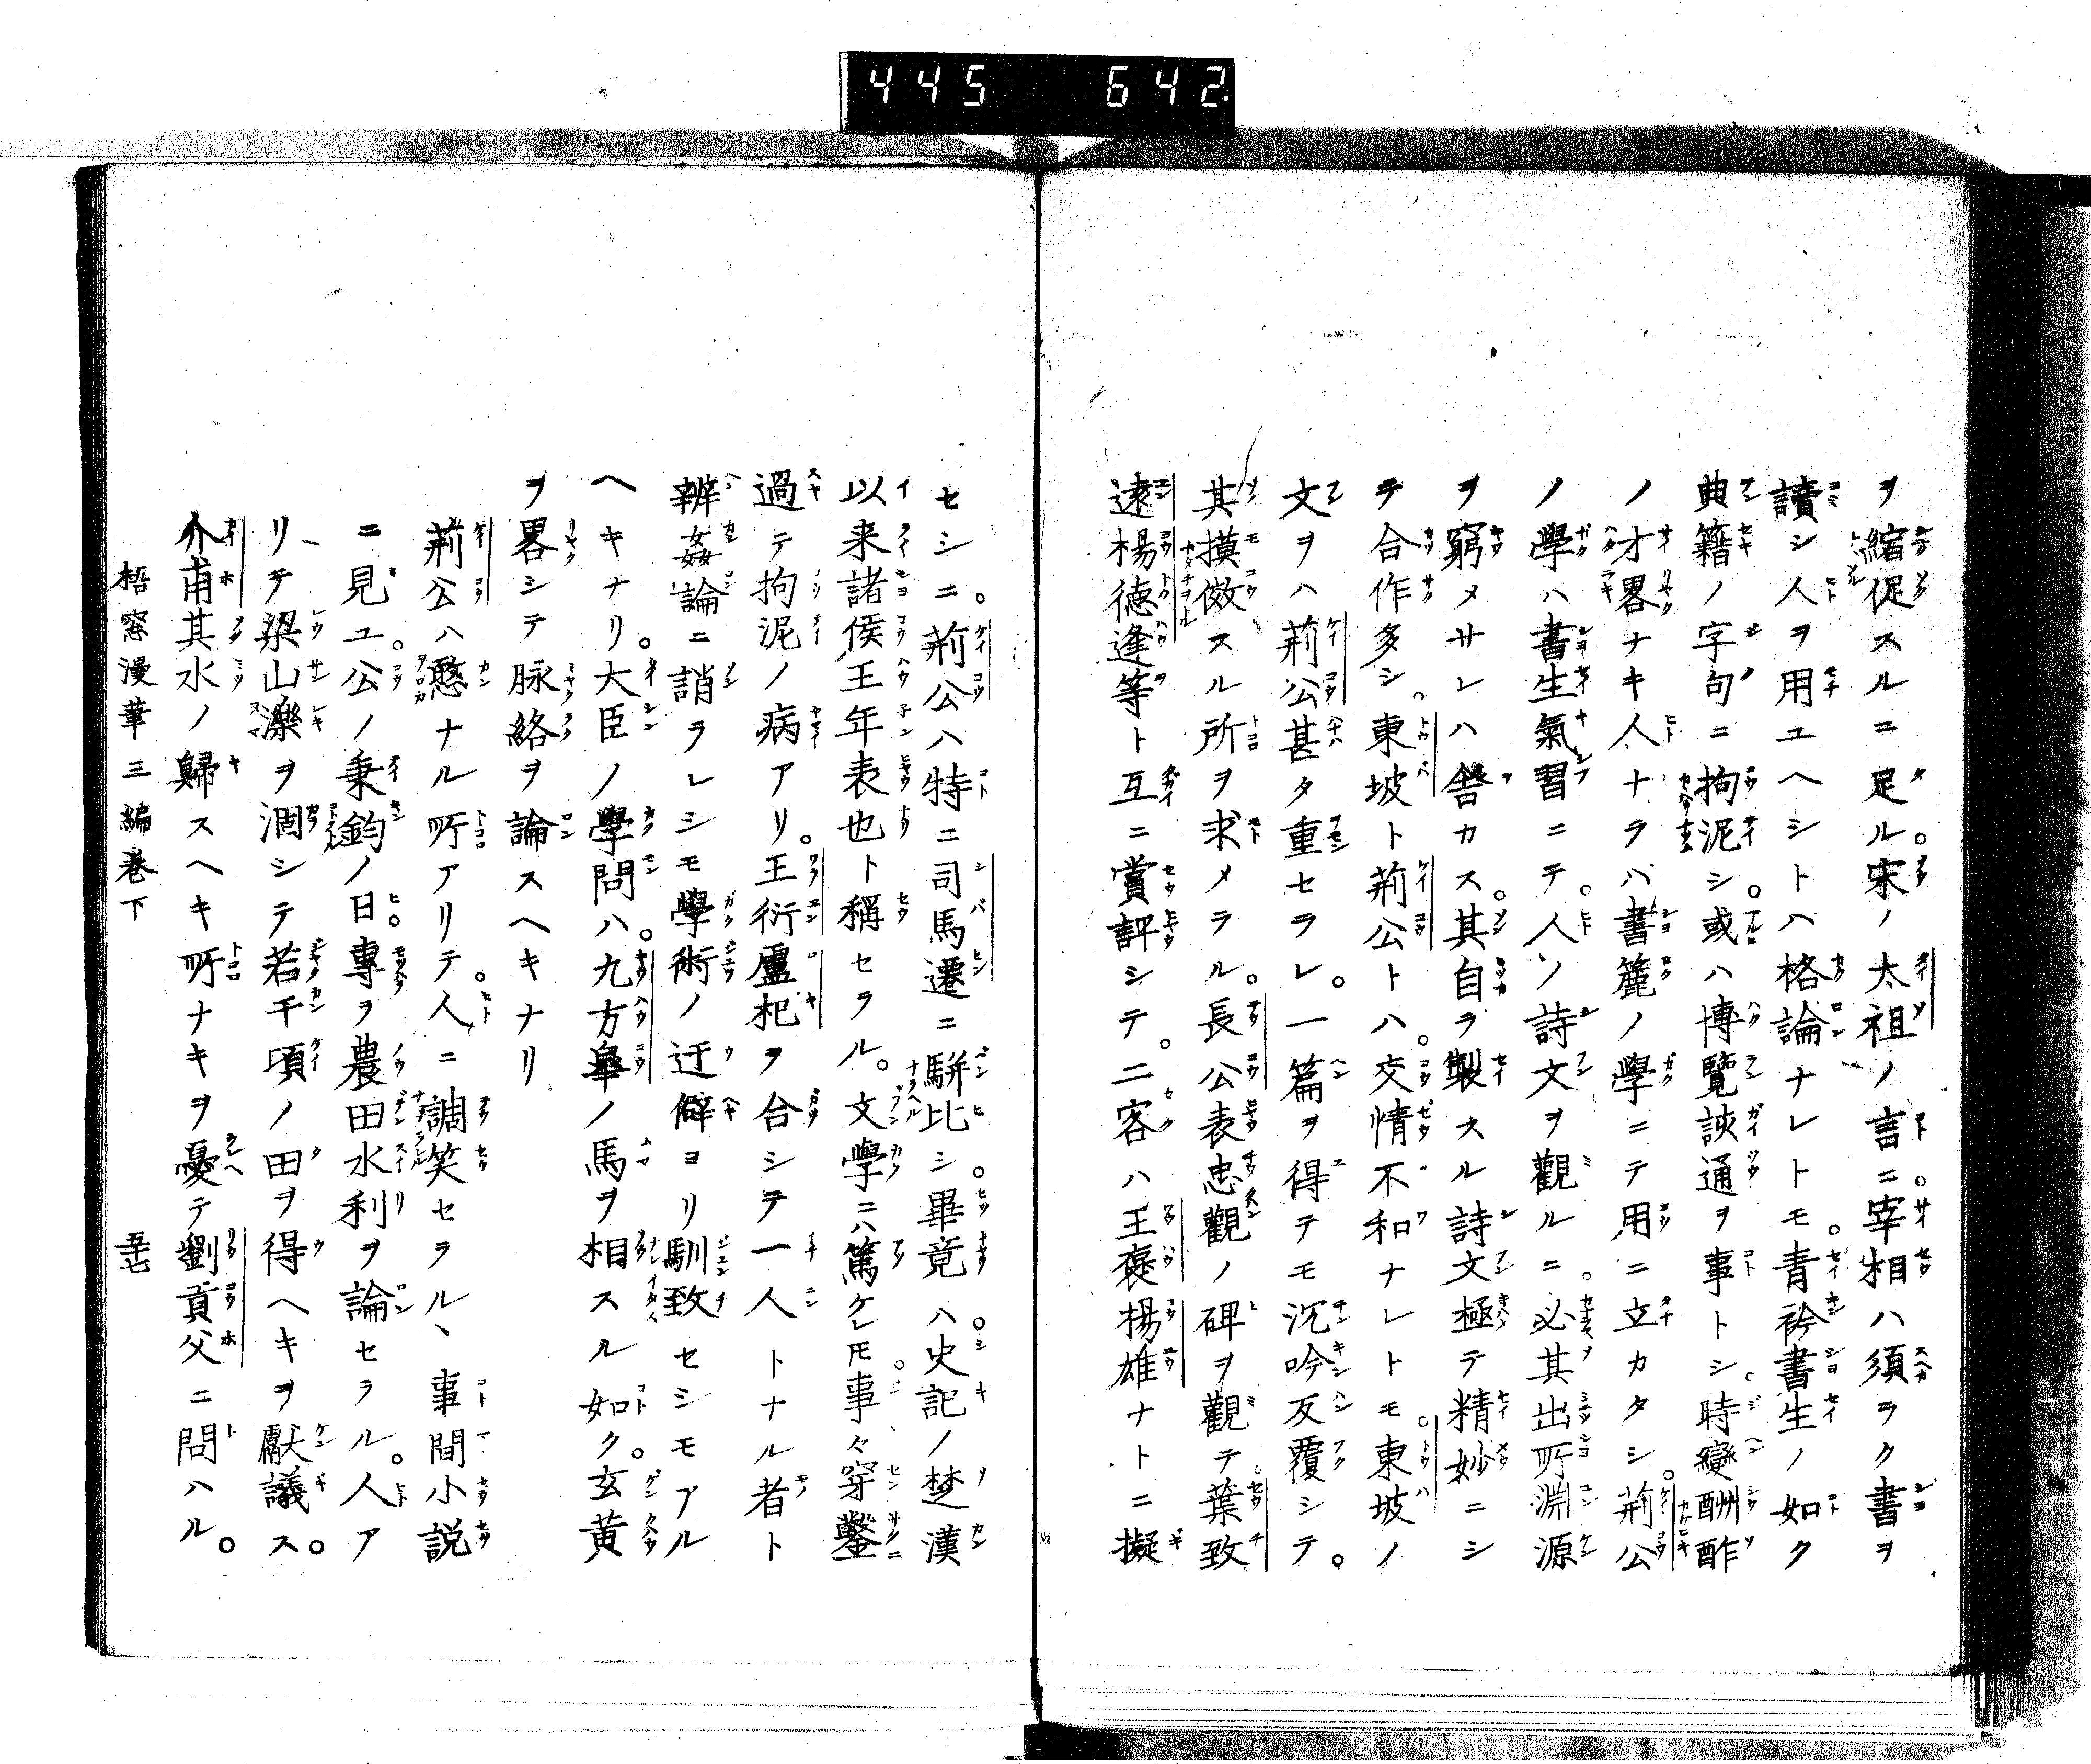 445 642.
ヲ縮促スルニ足ル。宋ノ太祖ノ言ニ。宰相ハ須ラク書ヲ
讀シ人ヲ用ユヘシトハ格論ナレトモ。青衿書生ノ如ク
典籍ノ字句ニ拘泥シ。或ハ博覽該通ヲ事トシ。時變酬酢
ノ才畧ナキ人ナラハ書簏ノ學ニテ用ニ立カタシ。荊公
ノ學ハ書生氣習ニテ。人ノ詩文ヲ觀ルニ。必其出所淵源
ヲ窮メサレハ舎カス。其自ラ製スル詩文極テ精妙ニシ
テ合作多シ。東坡ト荊公トハ。交情不和ナレトモ。東坡ノ
文ヲハ荊公甚タ重セラレ。一篇ヲ得テモ沉吟反覆シテ。
其摸倣スル所ヲ求メラル。長公表忠觀ノ碑ヲ觀テ。葉致
遠楊徳逢等ト互ニ賞評シテ。二客ハ王褒揚雄ナトニ擬
セシニ。荊公ハ特ニ司馬遷ニ駢比シ。畢竟ハ。史記ノ楚漢
以来諸侯王年表也ト稱セラル。文學ニハ篤ケレ𪜈。事々穿鑿
過テ拘泥ノ病アリ。王衍盧杞ヲ合シテ一人トナル者ト
辨姦論ニ誚ラレシモ學術ノ迂僻ヨリ馴致セシモアル
ヘキナリ。大臣ノ學問ハ。九方皐ノ馬ヲ相スル如ク。玄黄
ヲ畧シテ脉絡ヲ論スヘキナリ
荊公ハ憨ナル所アリテ。人ニ調笑セラル、事間小説
ニ見ユ。公ノ秉鈞ノ日。專ヲ農田水利ヲ論セラル。人ア
リテ梁山濼ヲ涸シテ若干頃ノ田ヲ得ヘキヲ獻議ス。
介甫其水ノ歸スヘキ所ナキヲ憂テ劉貢父ニ問ハル。
梧窓漫筆三編巻下 五七